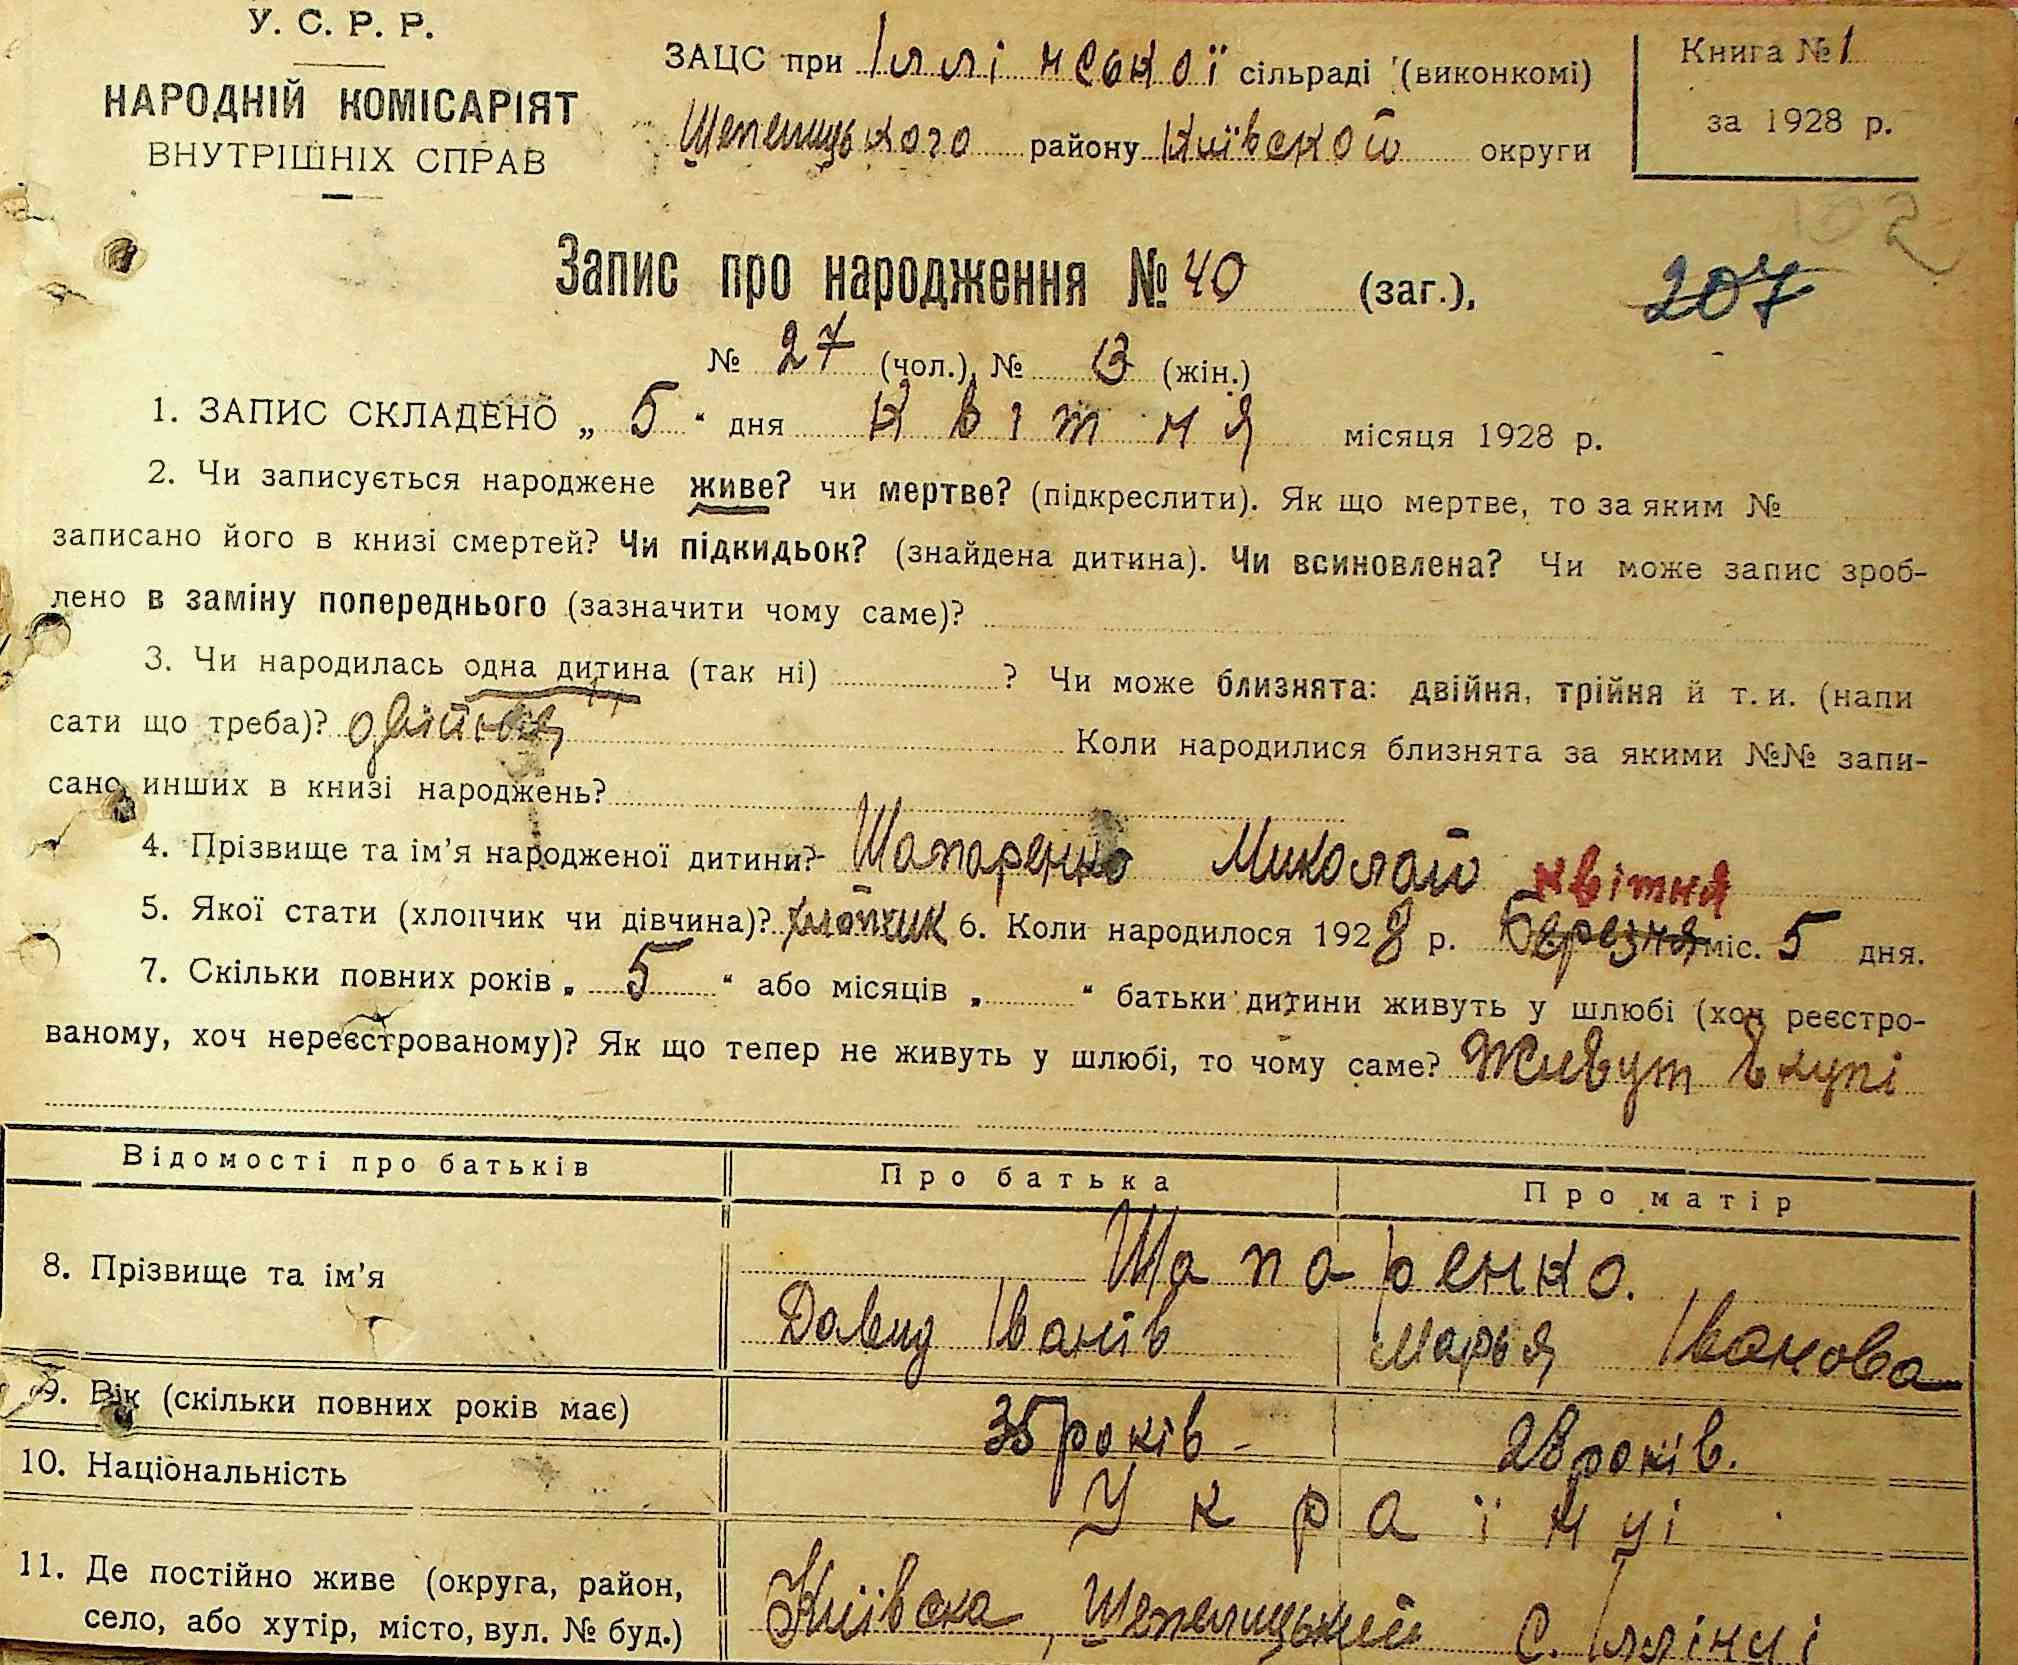 У. С. Р. Р.
НАРОДНІЙ КОМІСАРІЯТ
ВНУТРІШНІХ СПРАВ
ЗАЦС при Іллінської сільраді (виконкомі)
Шепелицького району Київской округи
Книга № 1
за 1928 р.
102
Запис про народження № 40 (заг.),
207
№ 27 (чол.), № 13 (жін.)
1. ЗАПИС СКЛАДЕНО „ 5 “ дня Квітня місяця 1928 р.
2. Чи записується народжене живе? чи мертве? (підкреслити). Як що мертве, то за яким №
записано його в книзі смертей? Чи підкидьок? (знайдена дитина). Чи всиновлена? Чи може запис зроб-
лено в заміну попереднього (зазначити чому саме)?
3. Чи народилась одна дитина (так ні) ? Чи може близнята: двійня, трійня й т. и. (напи
сати що треба)? двійня Коли народилися близнята за якими №№ запи-
сано инших в книзі народжень?
4. Прізвище та ім’я народженої дитини? Шапаренко Миколай
квітня
5. Якої стати (хлопчик чи дівчина)? хлопчик 6. Коли народилося 1928 р. Березня міс. 5 дня.
7. Скільки повних років „ 5 “ або місяців „ “ батьки дитини живуть у шлюбі (хоч реєстро-
ваному, хоч нереєстрованому)? Як що тепер не живуть у шлюбі, то чому саме? Живут вкупі
Відомості про батьків Про батька Про матір
8. Прізвище та ім’я Шапаренко.
Давид Іванів Марья Іванова
9. Вік (скільки повних років має) 35 років - 28 років.
10. Національність Українці
11. Де постійно живе (округа, район,
село, або хутір, місто, вул. № буд.) Київска, Шепелицький С. Іллінці